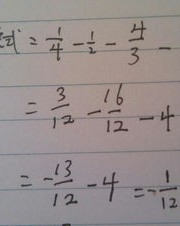 式 = 1/4 - 1/2 - 4/3 -
= 3/12 - 16/12 - 4
= -13/12 - 4 = -1/12